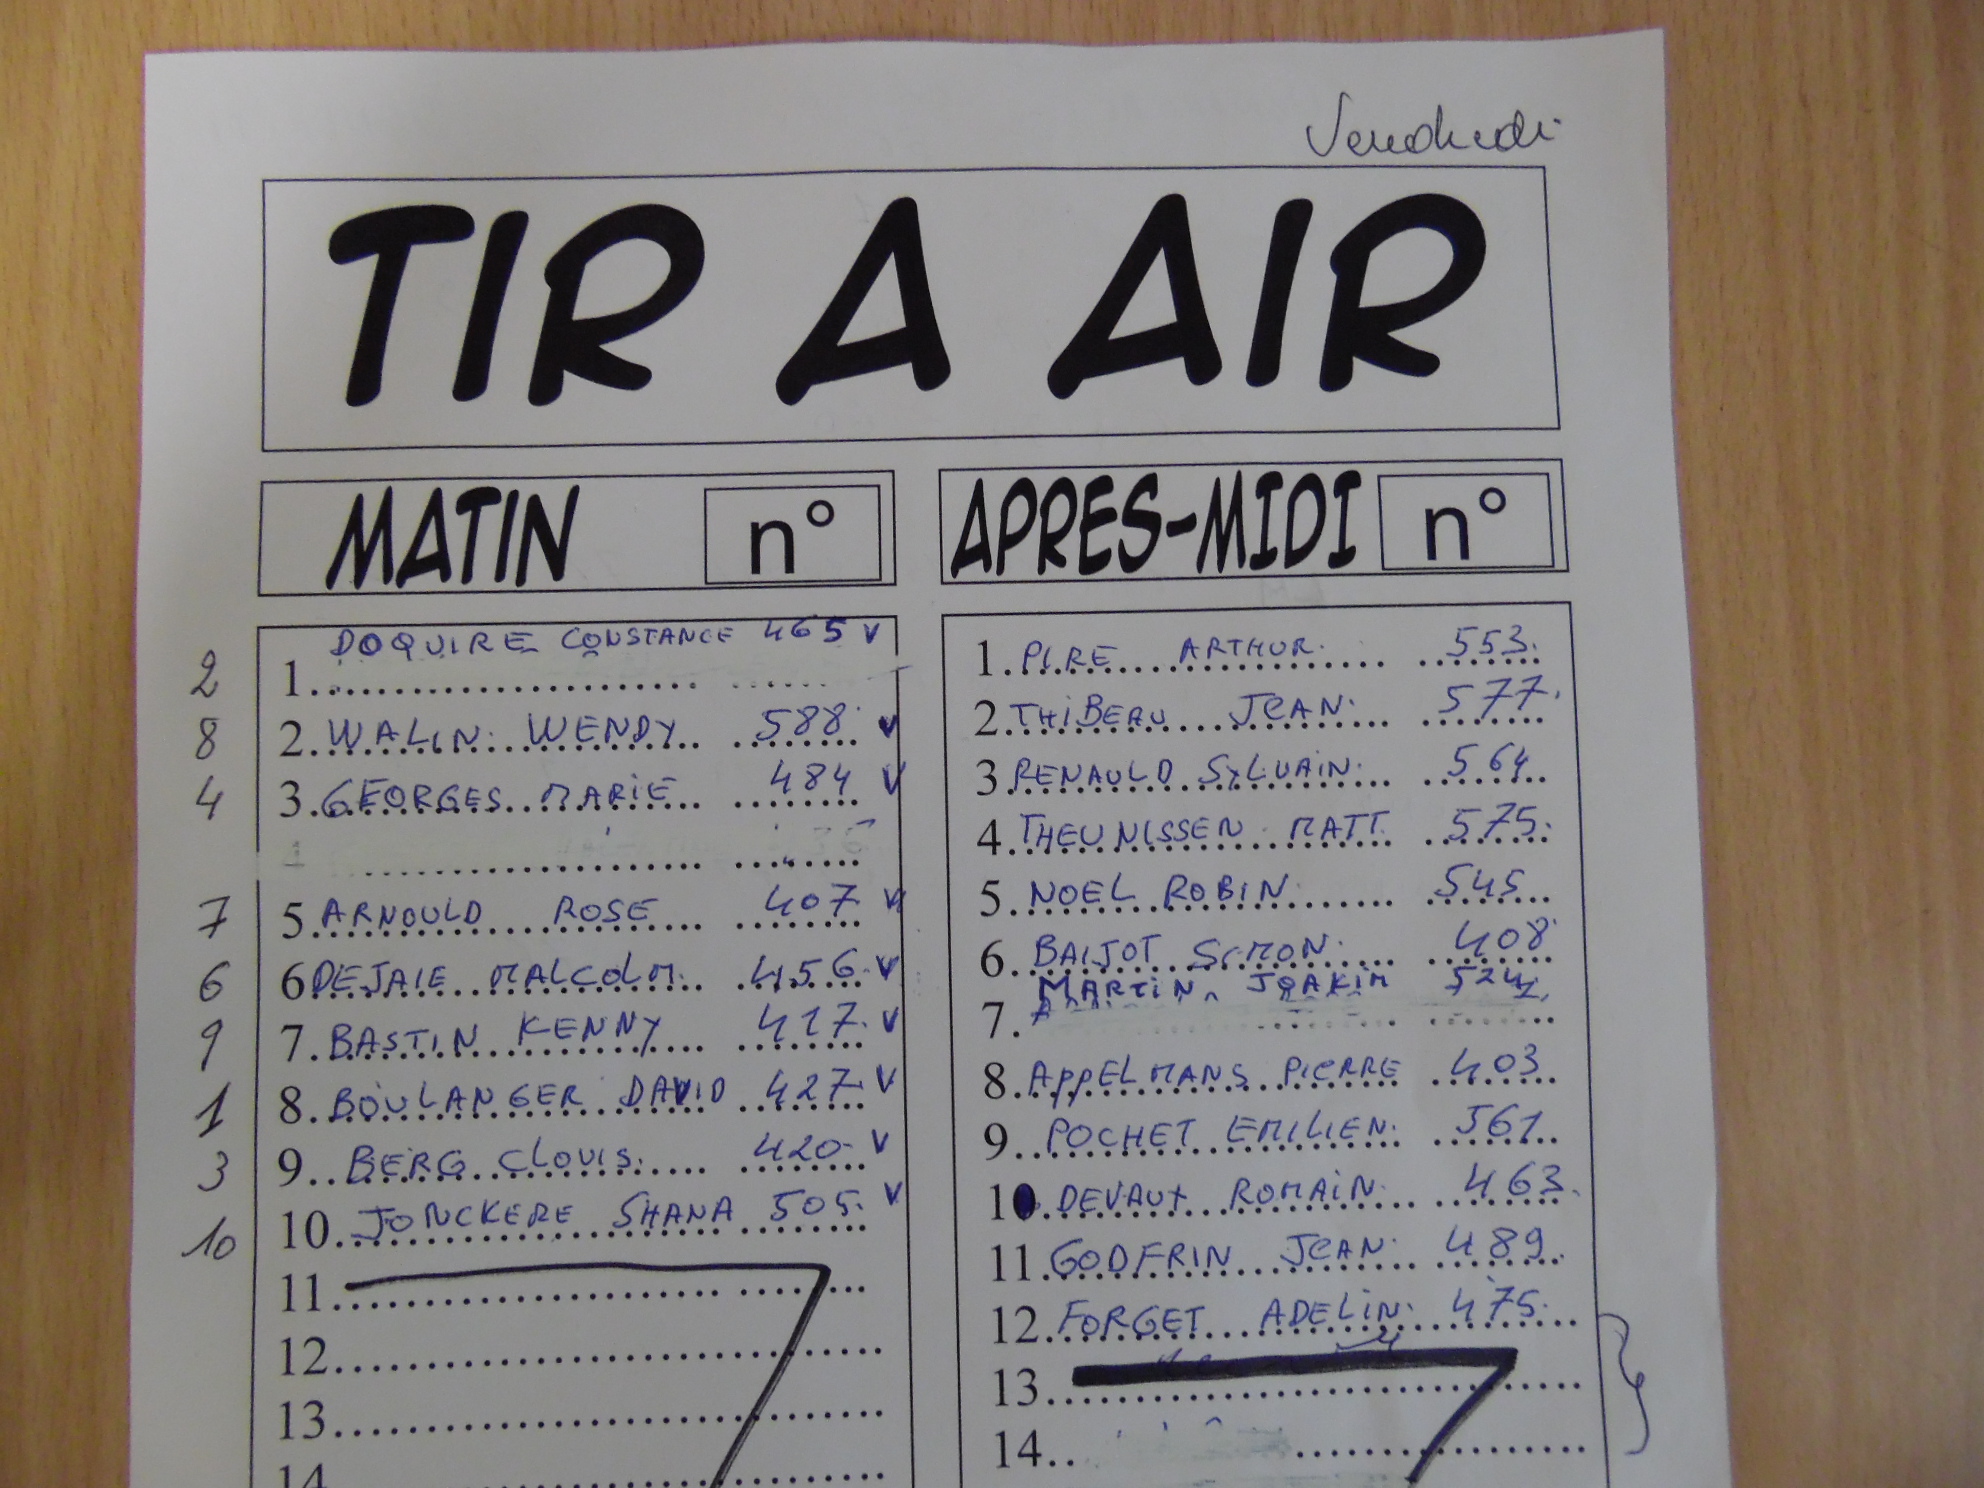 Vendredi
TIR A AIR
MATIN n°
2 1. DOQUIRE CONSTANCE 465 V
8 2. WALIN WENDY 588 V
4 3. GEORGES MARIE 484 V
7 5. ARNOULD ROSE 407 V
6 6 DEJAIE MALCOLM 456 V
9 7. BASTIN KENNY 417 V
1 8. BOULANGER DAVID 427 V
3 9. BERG CLOVIS 420 V
10 10. JONCKERE SHANA 505 V
11
12
13
14
APRES-MIDI n°
1. PIRE ARTHUR 553
2. THIBEAU JEAN 577
3 RENAULD SYLVAIN 564
4. THEUNISSEN MATT 575
5. NOEL ROBIN 545
6. BAIJOT SIMON 408
7. MARTIN JOAKIM
8. APPELMANS PIERRE 403
9. POCHET EMILIEN 561
10. DEVAUX ROMAIN 463
11. GODFRIN JEAN 489
12. FORGET ADELIN 475
13
14